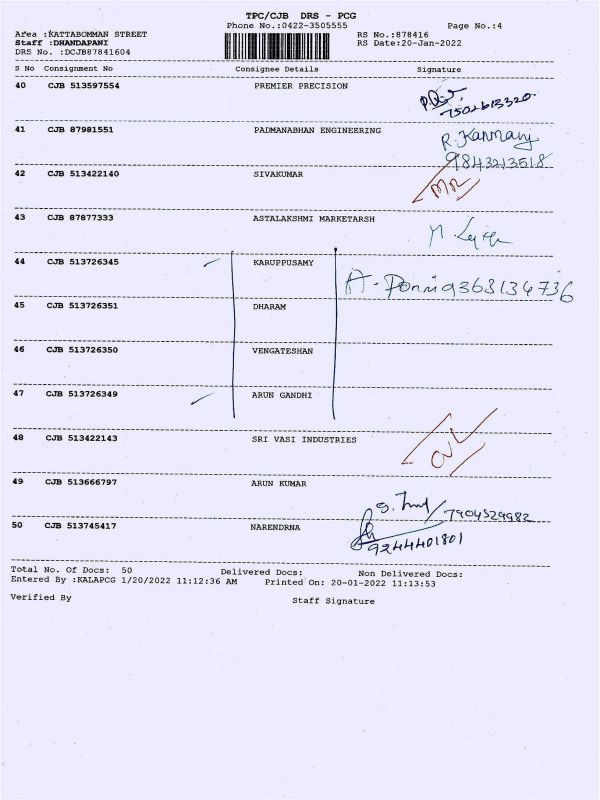 TPC/CJB DRS - PCG
Phone No.:0422-3505555
Page No.:4
Area :KATTABOMMAN STREET
RS No.:878416
Staff :DHANDAPANI
RS Date:20-Jan-2022
DRS No. :DCJB87841604
S No Consignment No Consignee Details Signature
40 CJB 513597554 PREMIER PRECISION
7502613320
41 CJB 87981551 PADMANABHAN ENGINEERING
9843213518
42 CJB 513422140 SIVAKUMAR
43 CJB 87877333 ASTALAKSHMI MARKETARSH
44 CJB 513726345 KARUPPUSAMY
A- Ponni 9363134736
45 CJB 513726351 DHARAM
46 CJB 513726350 VENGATESHAN
47 CJB 513726349 ARUN GANDHI
48 CJB 513422143 SRI VASI INDUSTRIES
49 CJB 513666797 ARUN KUMAR
7904529982
50 CJB 513745417 NARENDRNA
9244401801
Total No. Of Docs: 50 Delivered Docs: Non Delivered Docs:
Entered By :KALAPCG 1/20/2022 11:12:36 AM Printed On: 20-01-2022 11:13:53
Verified By Staff Signature